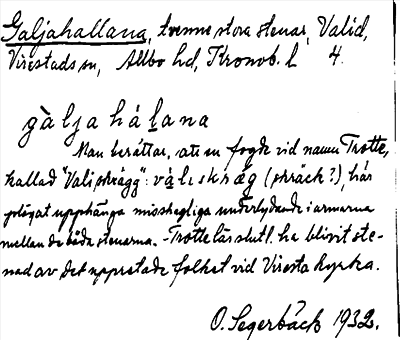 Galjahallana, tvenne stora stenar, Valid,
Virestads sn, Allbo hd, Kronob. l 4.
gàljahálana
Man berättar, att en fogde vid namn Trotte,
kallad "Valiskrägg": våliskrǽg (skräck?), här
plägat upphänga misshagliga underlydande i armarna
mellan de båda stenarna. - Trotte lär slutl. ha blivit ste-
nad av det uppretade folket vid Viresta kyrka.
O. Segerbäck 1932.